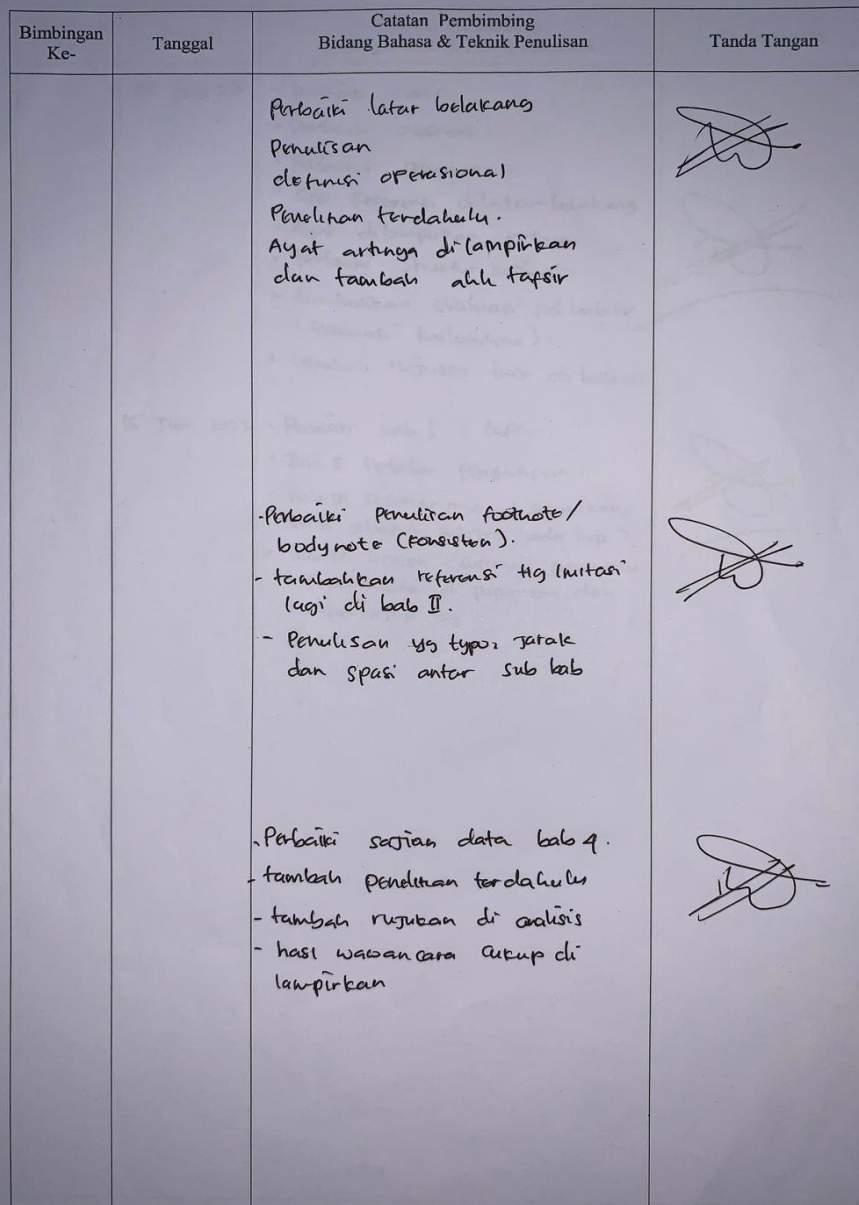 Bimbingan
Ke-
Tanggal
Catatan Pembimbing
Bidang Bahasa & Teknik Penulisan
Tanda Tangan
Perbaiki latar belakang
Penulisan
definisi operasional
Penelitian terdahulu.
Ayat artinya dilampirkan
dan tambah ahli tafsir
- Perbaiki penulisan footnote/
bodynote (konsisten).
- tambahkan referensi ttg imitasi
lagi di bab II.
- Penulisan yg typo, jarak
dan spasi antar sub bab
- Perbaiki sajian data bab 4.
- tambah penelitian terdahulu
- tambah rujukan di analisis
- hasl wawancara cukup di
lampirkan